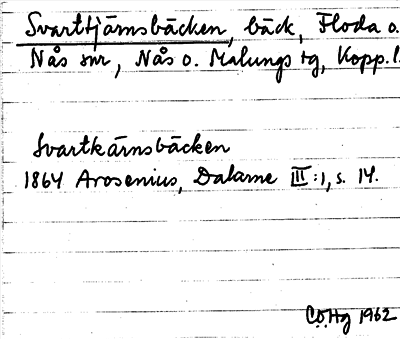 Svarttjärnsbäcken, bäck, Floda o.
Nås snr, Nås o. Malungs tg, Kopp. l.
Svartkärnsbäcken
1864 Arosenius, Dalarne III:1, s. 14.
C.O.Hg 1962